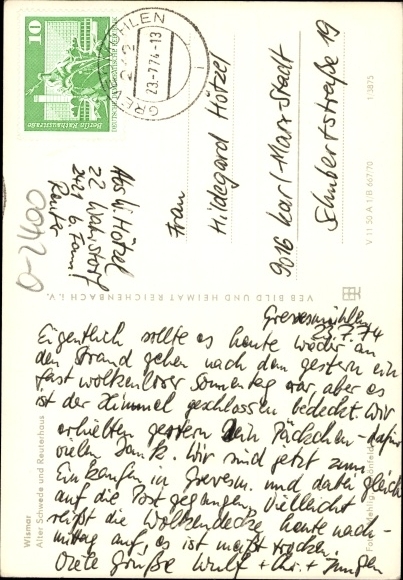 10
Berlin Rathausstraße
GREVESMÜHLEN
242
23.-7.74-13
Abs. W. Hötzel
22 Wahrstorf
2421 b. Fam.
Reuter
0-2400
Frau
Hildegard Hötzel
9016 Karl-Marx-Stadt
Schubertstraße 19
V 11 50 A 1/B 667/70
1/3875
VEB BILD UND HEIMAT REICHENBACH i. V.
Wismar
Alter Schwede und Reuterhaus
Grevesmühlen
23.7.74
Eigentlich sollte es heute wieder an
den Strand gehen nach dem gestern ein
fast wolkenloser Sonnentag war, aber es
ist der Himmel geschlossen bedeckt. Wir
erhielten gestern Dein Päckchen - dafür
vielen Dank. Wir sind jetzt zum
Einkaufen in Grevesm. und dabei gleich
auf die Post gegangen. Vielleicht
reißt die Wolkendecke heute nach-
mittag auf, es ist meist trocken.
Viele Grüße Wulf + Chr. + Jungen